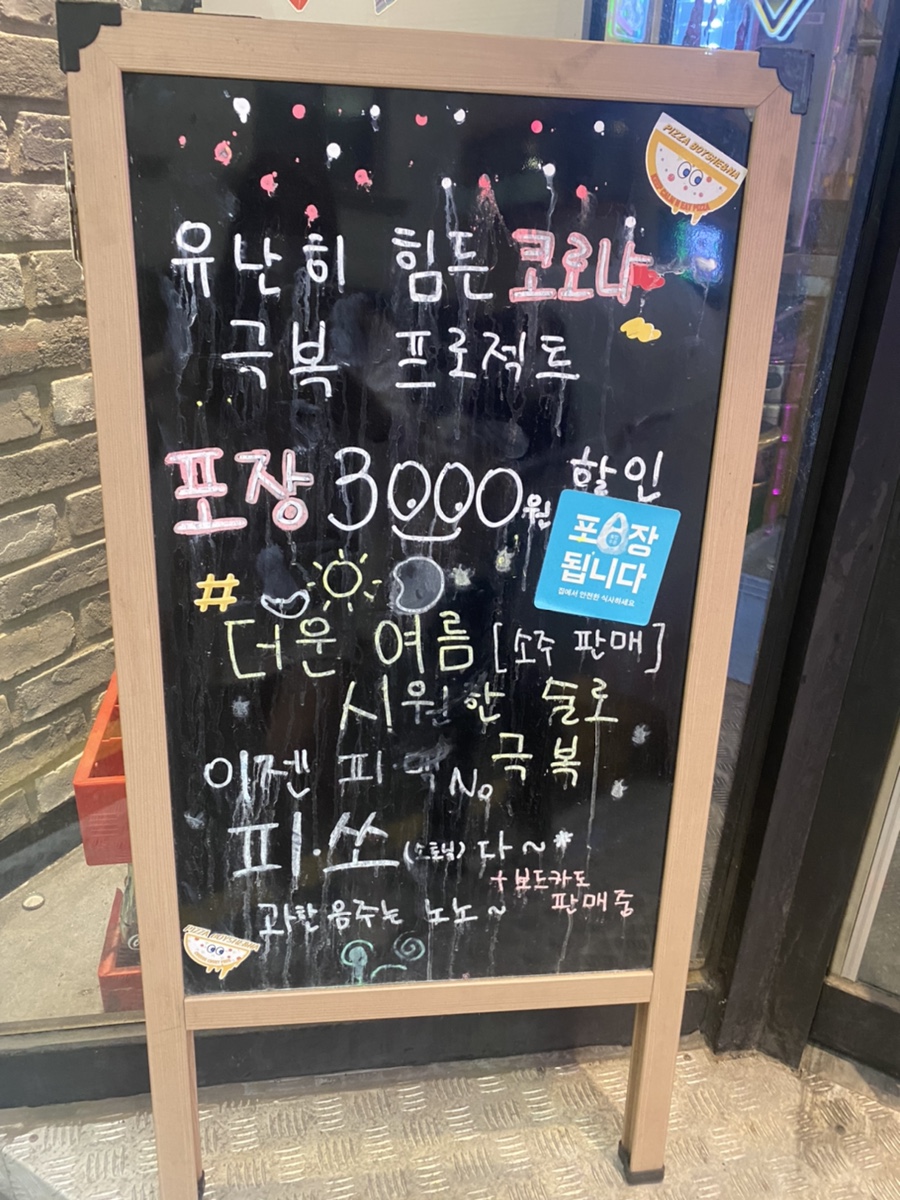 PIZZA BOYSHESNA
유난히 힘든 코로나
극복 프로젝트
포장 3000원 할인
포장
됩니다
집에서 안전한 식사하세요
#
더운 여름 [소주 판매]
시원한 술로
극복
이젠 피·맥 No
피·쏘 다~*
+ 보드카도
판매중
과한 음주는 노노~